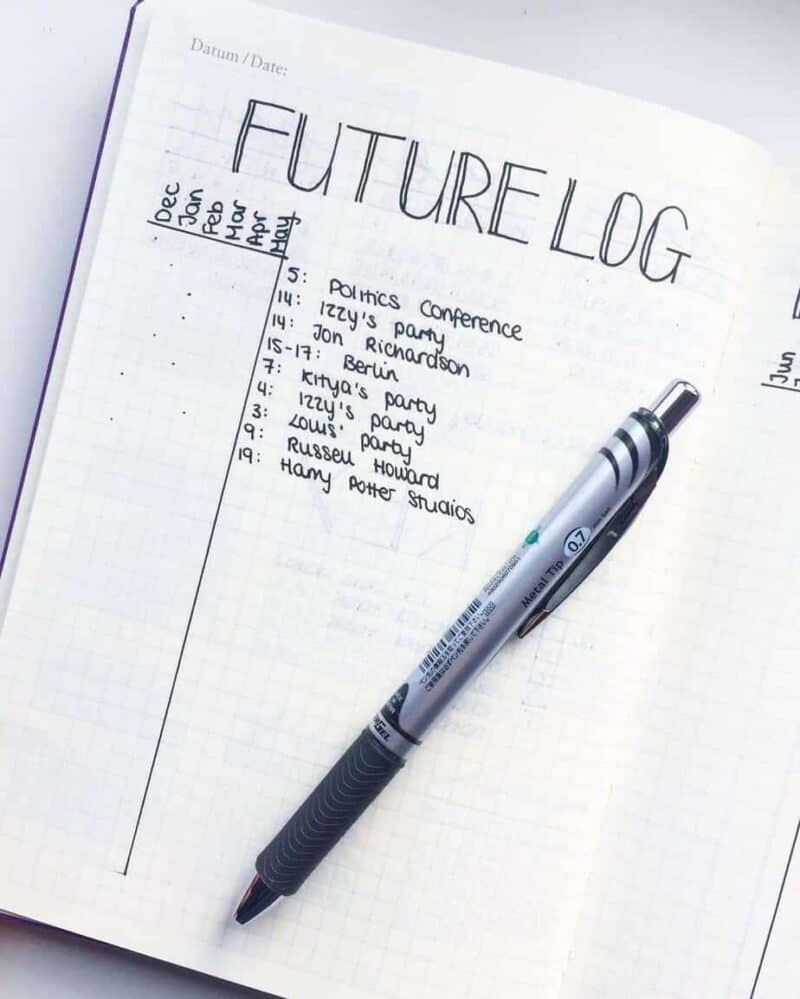 Datum / Date:
FUTURE LOG
Dec Jan Feb Mar Apr May
5: Politics Conference
14: Izzy's party
14: Jon Richardson
15-17: Berlin
7: Kitya's party
4: Izzy's party
3: Louis' party
9: Russell Howard
19: Harry Potter Studios
Jun
Metal Tip 0.7